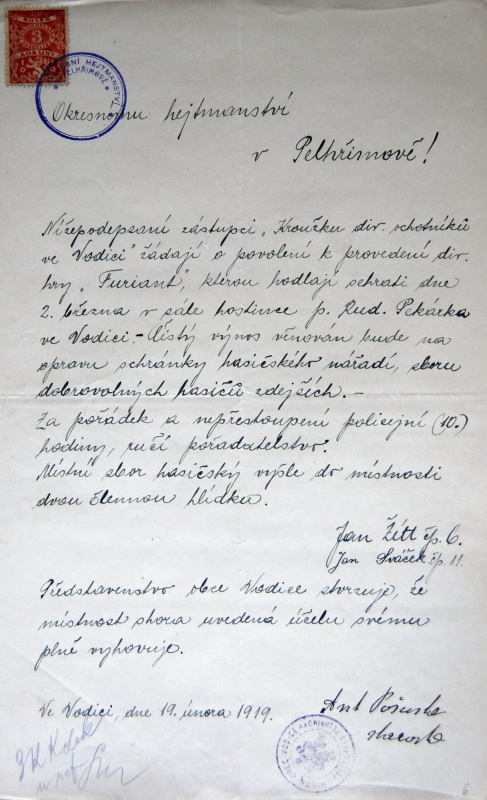 KOLEK
3
KORUNY
Okresnímu hejtmanství
v Pelhřimově!
Nížepodepsaní zástupci „Kroužku div. ochotníků
ve Vodici" žádají o povolení k provedení div.
hry „Furiant", kterou hodlají sehrati dne
2. března v sále hostince p. Rud. Pekárka
ve Vodici. – Čistý výnos věnován bude na
opravu schránky hasičského nářadí, sboru
dobrovolných hasičů zdejších. –
Za pořádek a nepřestoupení policejní (10.)
hodiny, ručí pořadatelstvo.
Místní sbor hasičský vyšle do místnosti
dvou člennou hlídku.
Jan Žítt čp. 6.
Jan Sváček čp. 11.
Představenstvo obce Vodice stvrzuje, že
místnost shora uvedená účelu svému
plně vyhovuje.
Ve Vodici, dne 19. února 1919.
Ant
starosta
6